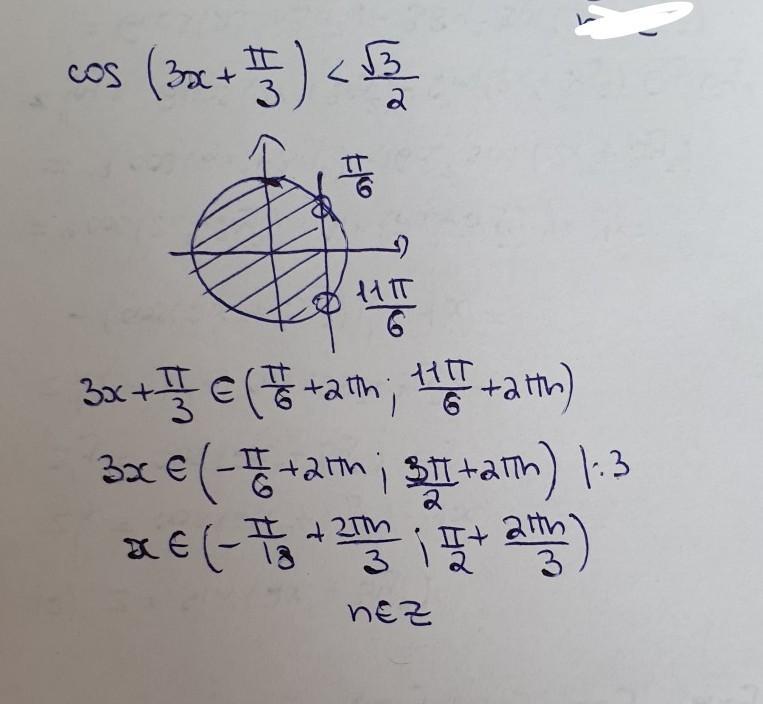 cos (3x + π/3) < √3/2
π/6
11π/6
3x + π/3 ∈ (π/6 + 2πn ; 11π/6 + 2πn)
3x ∈ (-π/6 + 2πn ; 3π/2 + 2πn) |:3
x ∈ (-π/18 + 2πn/3 ; π/2 + 2πn/3)
n ∈ Z